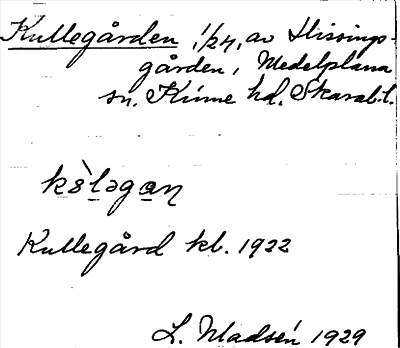 Kullegården, 1/24, av Hissings-
gården, Medelplana
sn. Kinne hd. Skarab. l.
kↄ̀ləgaɳ
Kullegård kl. 1922
L. Madsén 1929